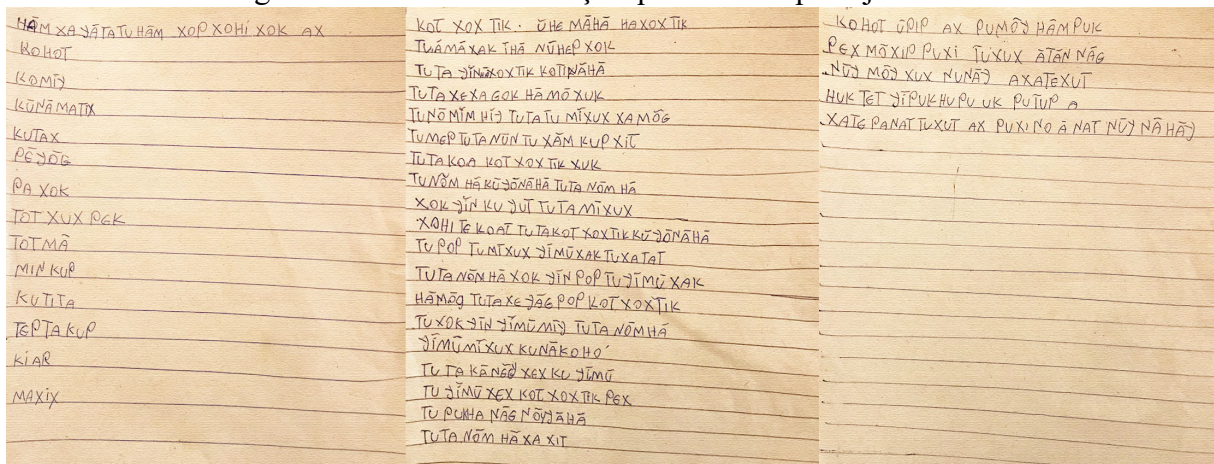 HÃM XA YÃTATU HÃM XOP XOHI XOK AX
KOHOT
KOMĨY
KŨNÃMATIX
KUTAX
PẼYÕG
PA XOK
TOT XUX PEK
TOTMÃ
MIN KUP
KUTITA
TEPTA KUP
KIAR
MAXIX
KOT XOX TIK. ŨHE MÃHÃ HAXOX TIK
XAK ĨHÃ NŨHEP XOK
TU TA KOTINÃHÃ
TUTA XEXA GOK HÃ MÕ XUK
TU NÕ MĨM HĨY TUTA TU MĨXUX XAMÕG
TU MEP TUTA NŨN TU XÃM KUP XIT
TUTA KOA KOT XOX TIK XUK
TU NÕM HÃ KŨYÕNÃHÃ TUTA NÕM HÃ
XOK YĨN KU YUT TUTA MĨXUX
XOHI TE KOAT TUTAKOT XOXTIK KŨYÕNÃHÃ
TU POP TU MĨXUX YĨMŨXAK TUXATAT
TUTA NÕM HÃ XOK YĨN POP TU YĨMŨ XAK
HÃMÕG TUTA XE YÃG POP KOT XOXTIK
TU XOK YĨN YĨMŨ MĨY TUTA NÕM HÃ
YĨMŨ MĨXUX KUNÃKOHO'
TU TA KÃNẼY XEX KU YĨMŨ
TU YĨMŨ XEX KOT XOX TIK PEX
TU PUKHA NÃG NÕYÃHÃ
TUTA NÕM HÃ XA XIT
KOHOT ŨPIP AX PU MÕY HÃMPUK
PEX MÕXIP PUXI TUXUX ÃTÃN NÃG
NŨY MÕY XUX NUNÃY AXATEXUT
HUK TET YĨPUK HU PU UK PUTUP A
XATE PANAT TUXUT AX PUXI NO Ã NAT NŨY NÃ HÃY